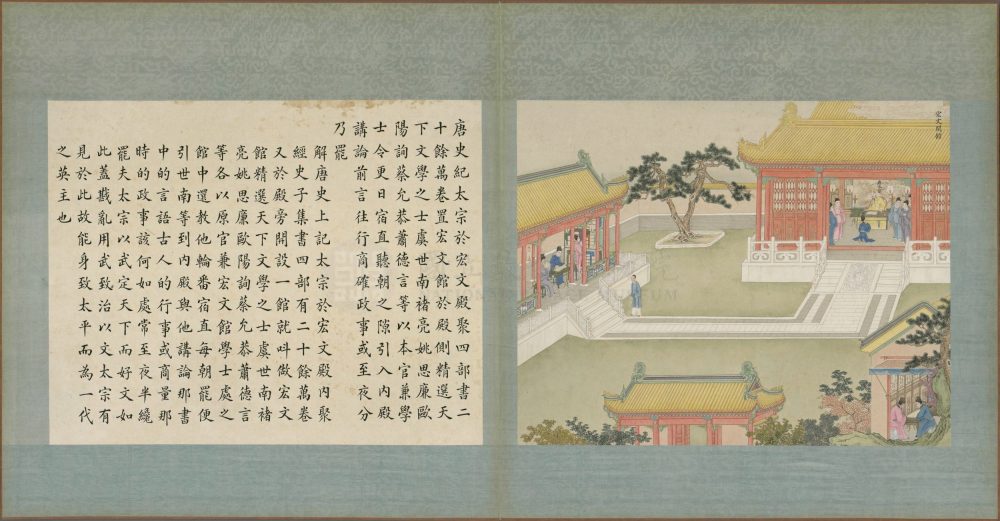 宏文開館
唐史紀太宗於宏文殿聚四部書二
十餘萬卷置宏文館於殿側精選天
下文學之士虞世南褚亮姚思廉歐
陽詢蔡允恭蕭德言等以本官兼學
士令更日宿直聽朝之隙引入內殿
講論前言往行商確政事或至夜分
乃罷
解唐史上記太宗於宏文殿內聚
經史子集書四部有二十餘萬卷
又於殿旁開設一館就呌做宏文
館精選天下文學之士虞世南褚
亮姚思廉歐陽詢蔡允恭蕭德言
等各以原官兼宏文館學士處之
館中還教他輪番宿直每朝罷便
引世南等到內殿與他講論那書
中的言語古人的行事或商量那
時的政事該何如處常至夜半纔
罷夫太宗以武定天下而好文如
此蓋戡亂用武致治以文太宗有
見於此故能身致太平而為一代
之英主也